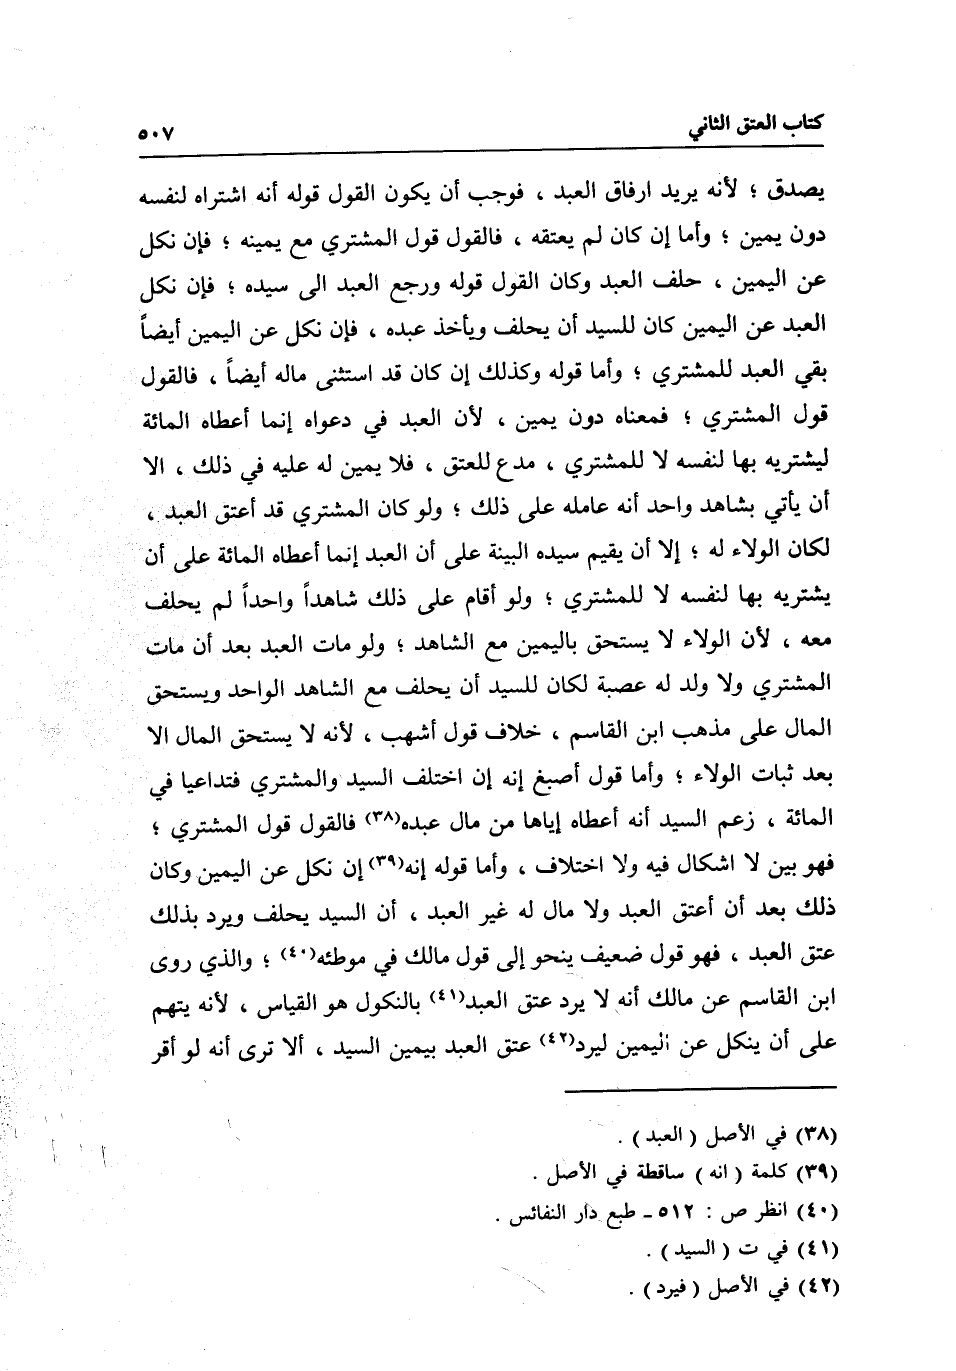 كتاب العتق الثاني
٥٠٧
يصدق ؛ لأنه يريد ارفاق العبد ، فوجب أن يكون القول قوله أنه اشتراه لنفسه
دون يمين ؛ وأما إن كان لم يعتقه ، فالقول قول المشتري مع يمينه ؛ فإن نكل
عن اليمين ، حلف العبد وكان القول قوله ورجع العبد الى سيده ؛ فإن نكل
العبد عن اليمين كان للسيد أن يحلف ويأخذ عبده ، فإن نكل عن اليمين أيضاً
بقي العبد للمشتري ؛ وأما قوله وكذلك إن كان قد استثنى ماله أيضاً ، فالقول
قول المشتري ؛ فمعناه دون يمين ، لأن العبد في دعواه إنما أعطاه المائة
ليشتريه بها لنفسه لا للمشتري ، مدع للعتق ، فلا يمين له عليه في ذلك ، الا
أن يأتي بشاهد واحد أنه عامله على ذلك ؛ ولو كان المشتري قد أعتق العبد ،
لكان الولاء له ؛ إلا أن يقيم سيده البينة على أن العبد إنما أعطاه المائة على أن
يشتريه بها لنفسه لا للمشتري ؛ ولو أقام على ذلك شاهداً واحداً لم يحلف
معه ، لأن الولاء لا يستحق باليمين مع الشاهد ؛ ولو مات العبد بعد أن مات
المشتري ولا ولد له عصبة لكان للسيد أن يحلف مع الشاهد الواحد ويستحق
المال على مذهب ابن القاسم ، خلاف قول أشهب ، لأنه لا يستحق المال الا
بعد ثبات الولاء ؛ وأما قول أصبغ إنه إن اختلف السيد والمشتري فتداعيا في
المائة ، زعم السيد أنه أعطاه إياها من مال عبده(٣٨) فالقول قول المشتري ؛
فهو بين لا اشكال فيه ولا اختلاف ، وأما قوله إنه(٣٩) إن نكل عن اليمين وكان
ذلك بعد أن أعتق العبد ولا مال له غير العبد ، أن السيد يحلف ويرد بذلك
عتق العبد ، فهو قول ضعيف ينحو إلى قول مالك في موطئه(٤٠) ؛ والذي روى
ابن القاسم عن مالك أنه لا يرد عتق العبد(٤١) بالنكول هو القياس ، لأنه يتهم
على أن ينكل عن اليمين ليرد(٤٢) عتق العبد بيمين السيد ، ألا ترى أنه لو أقر
(٣٨) في الأصل ( العبد ) .
(٣٩) كلمة ( انه ) ساقطة في الأصل .
(٤٠) انظر ص : ٥١٢ ـ طبع دار النفائس .
(٤١) في ت ( السيد ) .
(٤٢) في الأصل ( فيرد ) .